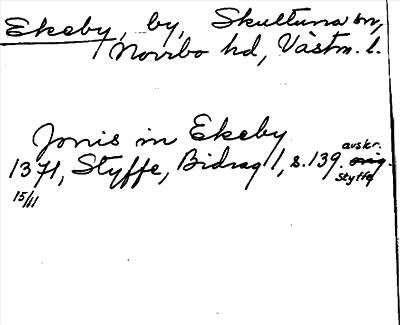 Ekeby, by, Skultuna sn,
Norrbo hd, Västm. l.
Jonis in Ekeby
1371, Styffe, Bidrag 1, s. 139. avskr.
15/11 Styffe